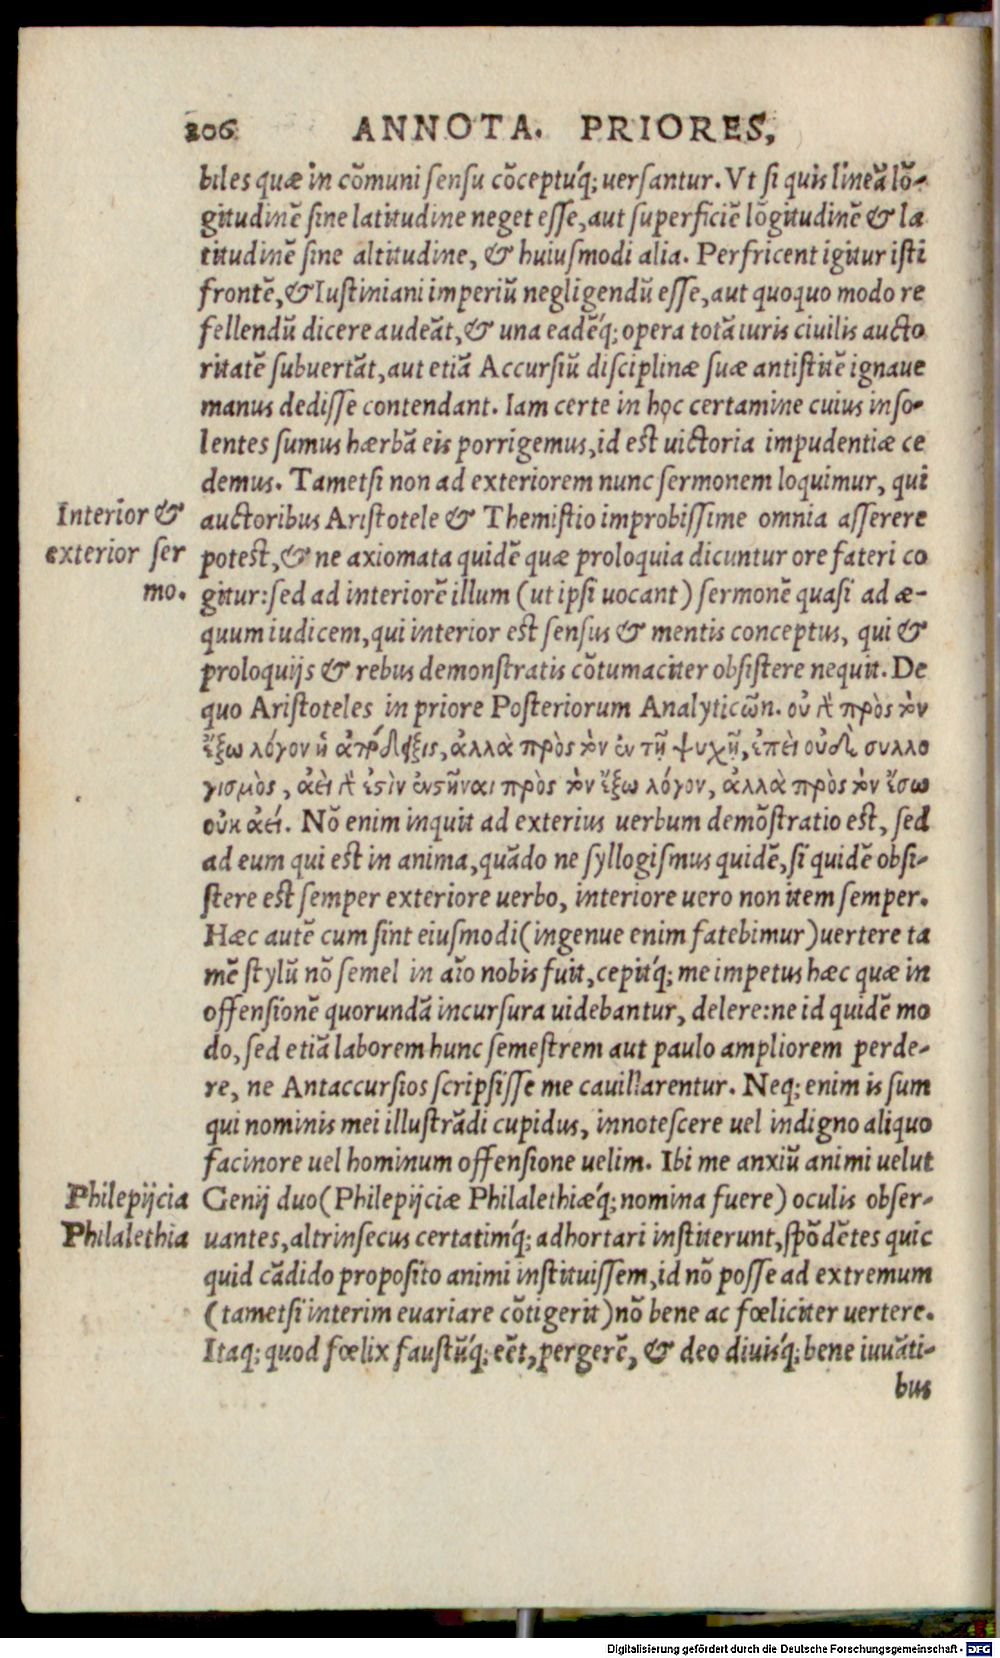 206 ANNOTA. PRIORES,
biles quæ in cõmuni sensu cõceptuq́; uersantur. Vt si quis lineã lõ-
gitudinẽ sine latitudine neget esse, aut superficiẽ lõgitudinẽ & la
titudinẽ sine altitudine, & huiusmodi alia. Perfricent igitur isti
frontẽ, & Iustiniani imperiũ negligendũ esse, aut quoquo modo re
fellendũ dicere audeãt, & una eadẽq́; opera totã iuris ciuilis aucto
ritatẽ subuertãt, aut etiã Accursiũ disciplinæ suæ antistitẽ ignaue
manus dedisse contendant. Iam certe in hoc certamine cuius inso-
lentes sumus hærbã eis porrigemus, id est uictoria impudentiæ ce
demus. Tametsi non ad exteriorem nunc sermonem loquimur, qui
Interior &
exterior ser
mo.
auctoribus Aristotele & Themistio improbissime omnia asserere
potest, & ne axiomata quidẽ quæ proloquia dicuntur ore fateri co
gitur: sed ad interiorẽ illum (ut ipsi uocant) sermonẽ quasi ad æ-
quum iudicem, qui interior est sensus & mentis conceptus, qui &
proloquijs & rebus demonstratis cõtumaciter obsistere nequit. De
quo Aristoteles in priore Posteriorum Analyticῶn. οὐ γὰρ πρὸς τὸν
ἔξω λόγον ἡ ἀπόδειξις, ἀλλὰ πρὸς τὸν ἐν τῇ ψυχῇ, ἐπεὶ οὐδὲ συλλο
γισμὸς, ἀεὶ γὰρ ἐστὶν ἐνστῆναι πρὸς τὸν ἔξω λόγον, ἀλλὰ πρὸς τὸν ἔσω
οὐκ ἀεί. Nõ enim inquit ad exterius uerbum demõstratio est, sed
ad eum qui est in anima, quãdo ne syllogismus quidẽ, si quidẽ obsi-
stere est semper exteriore uerbo, interiore uero non item semper.
Hæc autẽ cum sint eiusmodi (ingenue enim fatebimur) uertere ta
mẽ stylũ nõ semel in aĩo nobis fuit, cepitq́; me impetus hæc quæ in
offensionẽ quorundã incursura uidebantur, delere: ne id quidẽ mo
do, sed etiã laborem hunc semestrem aut paulo ampliorem perde-
re, ne Antaccursios scripsisse me cauillarentur. Neq; enim is sum
qui nominis mei illustrãdi cupidus, innotescere uel indigno aliquo
facinore uel hominum offensione uelim. Ibi me anxiũ animi uelut
Philepijcia
Philalethia
Genij duo (Philepijciæ Philalethiæq́; nomina fuere) oculis obser-
uantes, altrinsecus certatimq́; adhortari institerunt, spõdẽtes quic
quid cãdido proposito animi instituissem, id nõ posse ad extremum
(tametsi interim euariare cõtigerit) nõ bene ac fœliciter uertere.
Itaq; quod fœlix faustũq́; eẽt, pergerẽ, & deo diuisq́; bene iuuãti-
bus
Digitalisierung gefördert durch die Deutsche Forschungsgemeinschaft - DFG